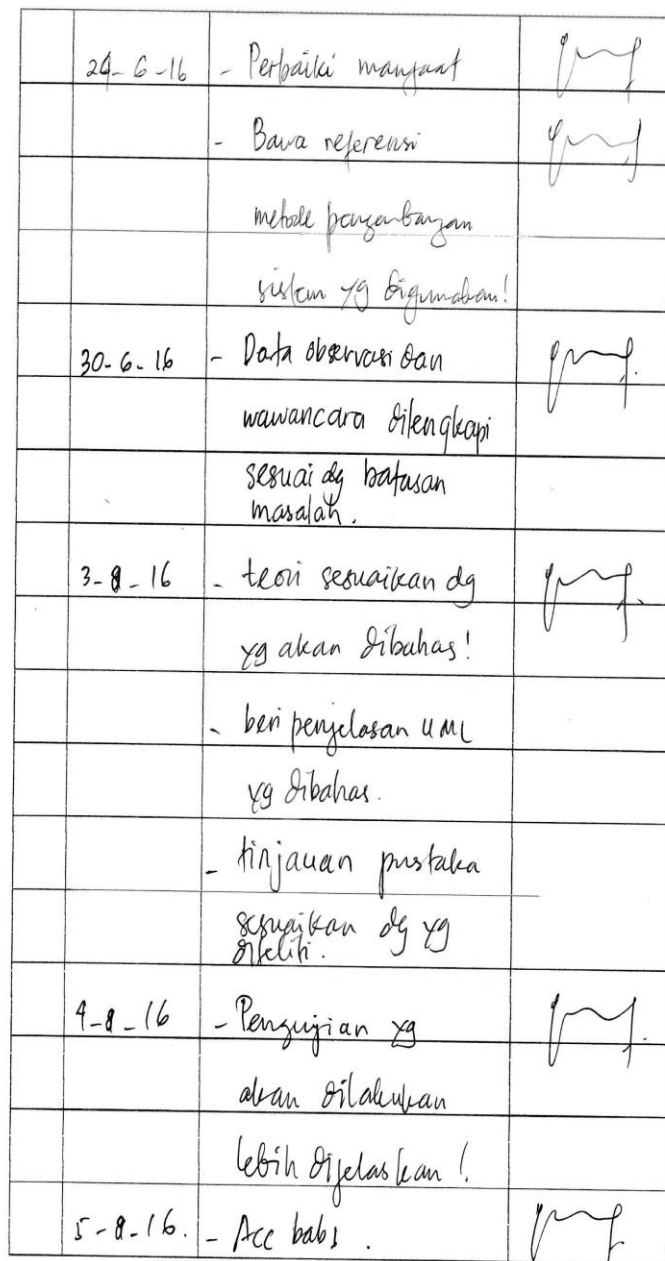 24-6-16 - Perbaiki manfaat
- Bawa referensi
metode pengembangan
sistem yg digunakan!
30-6-16 - Data observasi dan
wawancara dilengkapi
sesuai dg batasan
masalah.
3-8-16 - teori sesuaikan dg
yg akan dibahas!
- beri penjelasan UML
yg dibahas.
- tinjauan pustaka
sesuaikan dg yg
diteliti.
4-8-16 - Pengujian yg
akan dilakukan
lebih dijelaskan!
5-8-16. - Acc bab